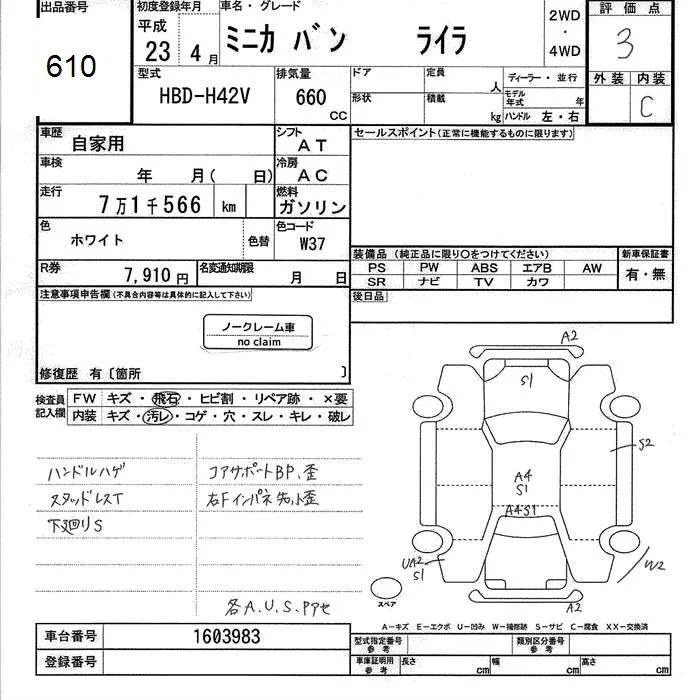 出品番号
610
初度登録年月
平成
23 4 月
車名・グレード
ミニカ バン ライラ
2WD
・
4WD
評価点
3
外装 内装
C
型式
HBD-H42V
排気量
660 CC
ドア
定員
人
形状
積載
kg
ディーラー・並行
モデル年式 年
ハンドル 左・右
車歴
自家用
シフト
AT
車検
年 月( 日)
冷房
AC
走行
7万1千566 km
燃料
ガソリン
色
ホワイト
色替
色コード
W37
R券
7,910 円
名変通知期限
月 日
セールスポイント(正常に機能するものに限ります)
装備品 (純正品に限り〇をつけてください)
PS PW ABS エアB AW
SR ナビ TV カワ
新車保証書
有・無
後日品
注意事項申告欄(不具合内容等は具体的に記入して下さい)
ノークレーム車
no claim
修復歴 有〔箇所 〕
検査員記入欄
FW キズ・飛石・ヒビ割・リペア跡・×要
内装 キズ・汚レ・コゲ・穴・スレ・キレ・破レ
ハンドルハゲ
スタッドレスT
下廻りS
コアサポートBP、歪
右Fインパネ先小歪
各A.U.S.Pアセ
A2
S1
S2
A4
S1
A4S1
UA2
S1
W2
A2
スペア
A−キズ E−エクボ U−凹み W−補修跡 S−サビ C−腐食 XX−交換済
車台番号 1603983
登録番号
型式指定番号
参考
類別区分番号
参考
車庫証明用
参考
長さ cm 幅 cm 高さ cm